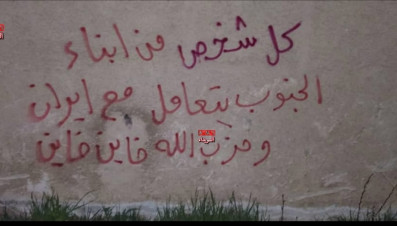 كل شخص من ابناء
الجنوب يتعامل مع ايران
وحزب الله خاين خاين